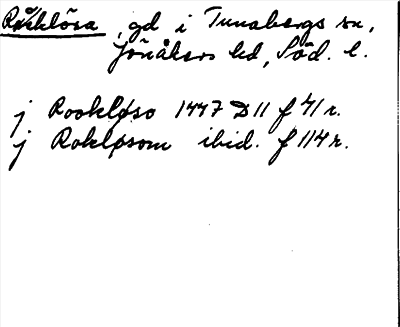 Råcklösa, gd i Tunabergs sn,
Jönåkers hd, Söd. l.
j Rookløso 1447 D 11 f 41 r.
j Rokløsom ibid. f 114 r.